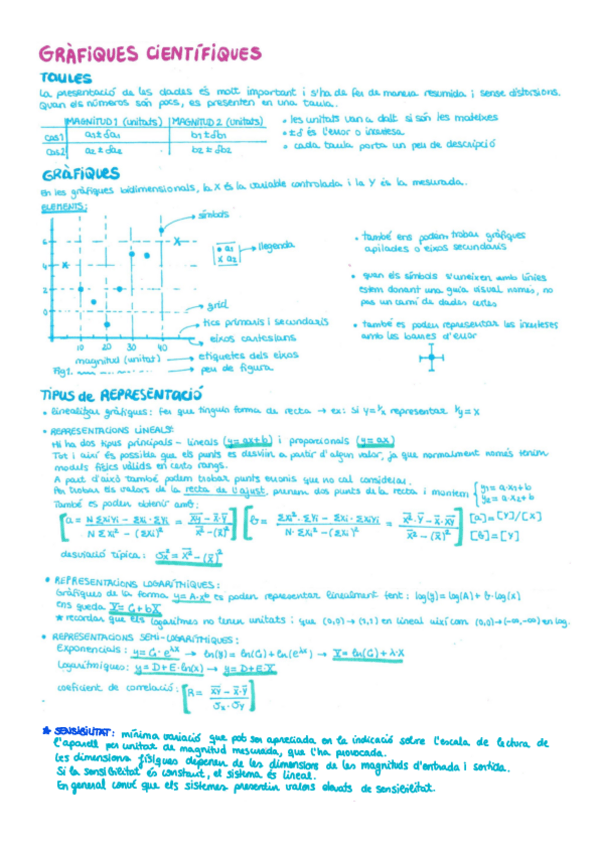 GRÀFIQUES CIENTÍFIQUES
TAULES
La presentació de les dades és molt important i s'ha de fer de manera resumida i sense distorsions.
Quan els números són pocs, es presenten en una taula.
MAGNITUD 1 (unitats) MAGNITUD 2 (unitats)
cas1 a1±δa1 b1±δb1
cas2 a2±δa2 b2±δb2
• les unitats van a dalt si són les mateixes
• ±δ és l'error o incertesa
• cada taula porta un peu de descripció
GRÀFIQUES
En les gràfiques bidimensionals, la X és la variable controlada i la Y és la mesurada.
ELEMENTS:
símbols
• a1
x a2
llegenda
6
4
2
0
10 20 30 40
grid
tics primaris i secundaris
eixos cartesians
magnitud (unitat) → etiquetes dels eixos
Fig1. → peu de figura
• també ens podem trobar gràfiques
apilades o eixos secundaris
• quan els símbols s'uneixen amb línies
estem donant una guia visual només, no
pas un camí de dades certes
• també es poden representar les incerteses
amb les barres d'error
TIPUS de REPRESENTACIÓ
• linealitzar gràfiques: fer que tinguin forma de recta → ex: si y=1/x representar 1/y=x
• REPRESENTACIONS LINEALS:
Hi ha dos tipus principals - lineals (y=ax+b) i proporcionals (y=ax)
Tot i així és possible que els punts es desviïn a partir d'algun valor, ja que normalment només tenim
models físics vàlids en certs rangs.
A part d'això també podem trobar punts erronis que no cal considerar.
Per trobar els valors de la recta de l'ajust, prenem dos punts de la recta i montem { y1 = a·x1+b
y2 = a·x2+b
També es poden obtenir amb:
[a = (NΣxiyi - Σxi·Σyi)/(NΣxi² - (Σxi)²) = (x̄ȳ - x̄·ȳ)/(x̄² - (x̄)²)] [b = (Σxi²·Σyi - Σxi·Σxiyi)/(N·Σxi² - (Σxi)²) = (x̄²·ȳ - x̄·x̄ȳ)/(x̄² - (x̄)²)] [a]=[Y]/[X]
[b]=[Y]
desviació típica: σx² = x̄² - (x̄)²
• REPRESENTACIONS LOGARÍTMIQUES:
Gràfiques de la forma y=A·xᵇ es poden representar linealment fent: log(y)=log(A)+b·log(x)
ens queda Y=C+bX
* recordar que els logaritmes no tenen unitats i que (0,0)→(1,1) en lineal així com (0,0)→(-∞,-∞) en log.
• REPRESENTACIONS SEMI-LOGARÍTMIQUES:
Exponencials: y=C·e^λx → ln(y)=ln(C)+ln(e^λx) → Y=ln(C)+λ·X
Logarítmiques: y=D+E·ln(x) → y=D+E·X
coeficient de correlació: [R = (x̄ȳ - x̄·ȳ)/(σx·σy)]
* SENSIBILITAT: mínima variació que pot ser apreciada en la indicació sobre l'escala de lectura de
l'aparell per unitat de magnitud mesurada, que l'ha provocada.
Les dimensions físiques depenen de les dimensions de les magnituds d'entrada i sortida.
Si la sensibilitat és constant, el sistema és lineal.
En general convé que els sistemes presentin valors elevats de sensibilitat.